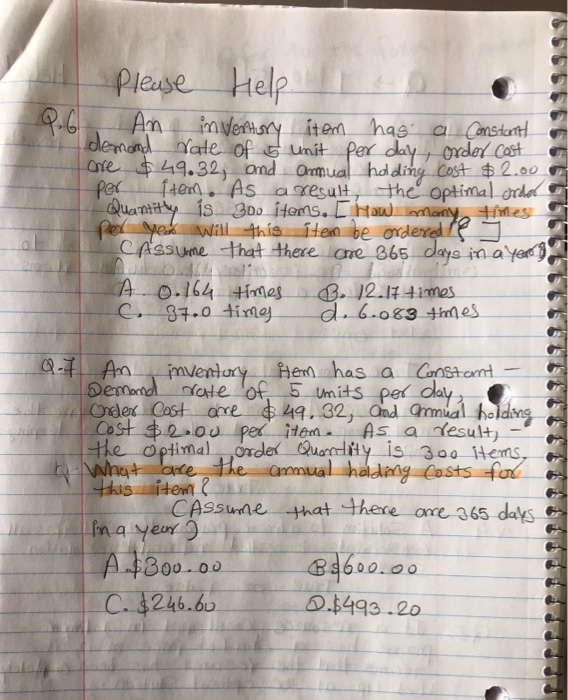 Please Help
Q.6 An inventory item has a Constant
demand rate of 5 unit per day, order cost
are $49.32, and annual holding cost $2.00
per item. As a result, the optimal order
Quantity is 300 items. [How many times
per year will this item be ordered? ]
(Assume that there are 365 days in a year)
A. 0.164 times B. 12.17 times
C. 37.0 times d. 6.083 times
Q-7 An inventory item has a Constant -
Demand rate of 5 units per day,
Order Cost are $49.32, and annual holding
Cost $2.00 per item. As a result, -
the optimal order Quantity is 300 items.
What are the annual holding Costs for
this item?
(Assume that there are 365 days
in a year)
A. $300.00 B $600.00
C. $246.60 D. $493.20